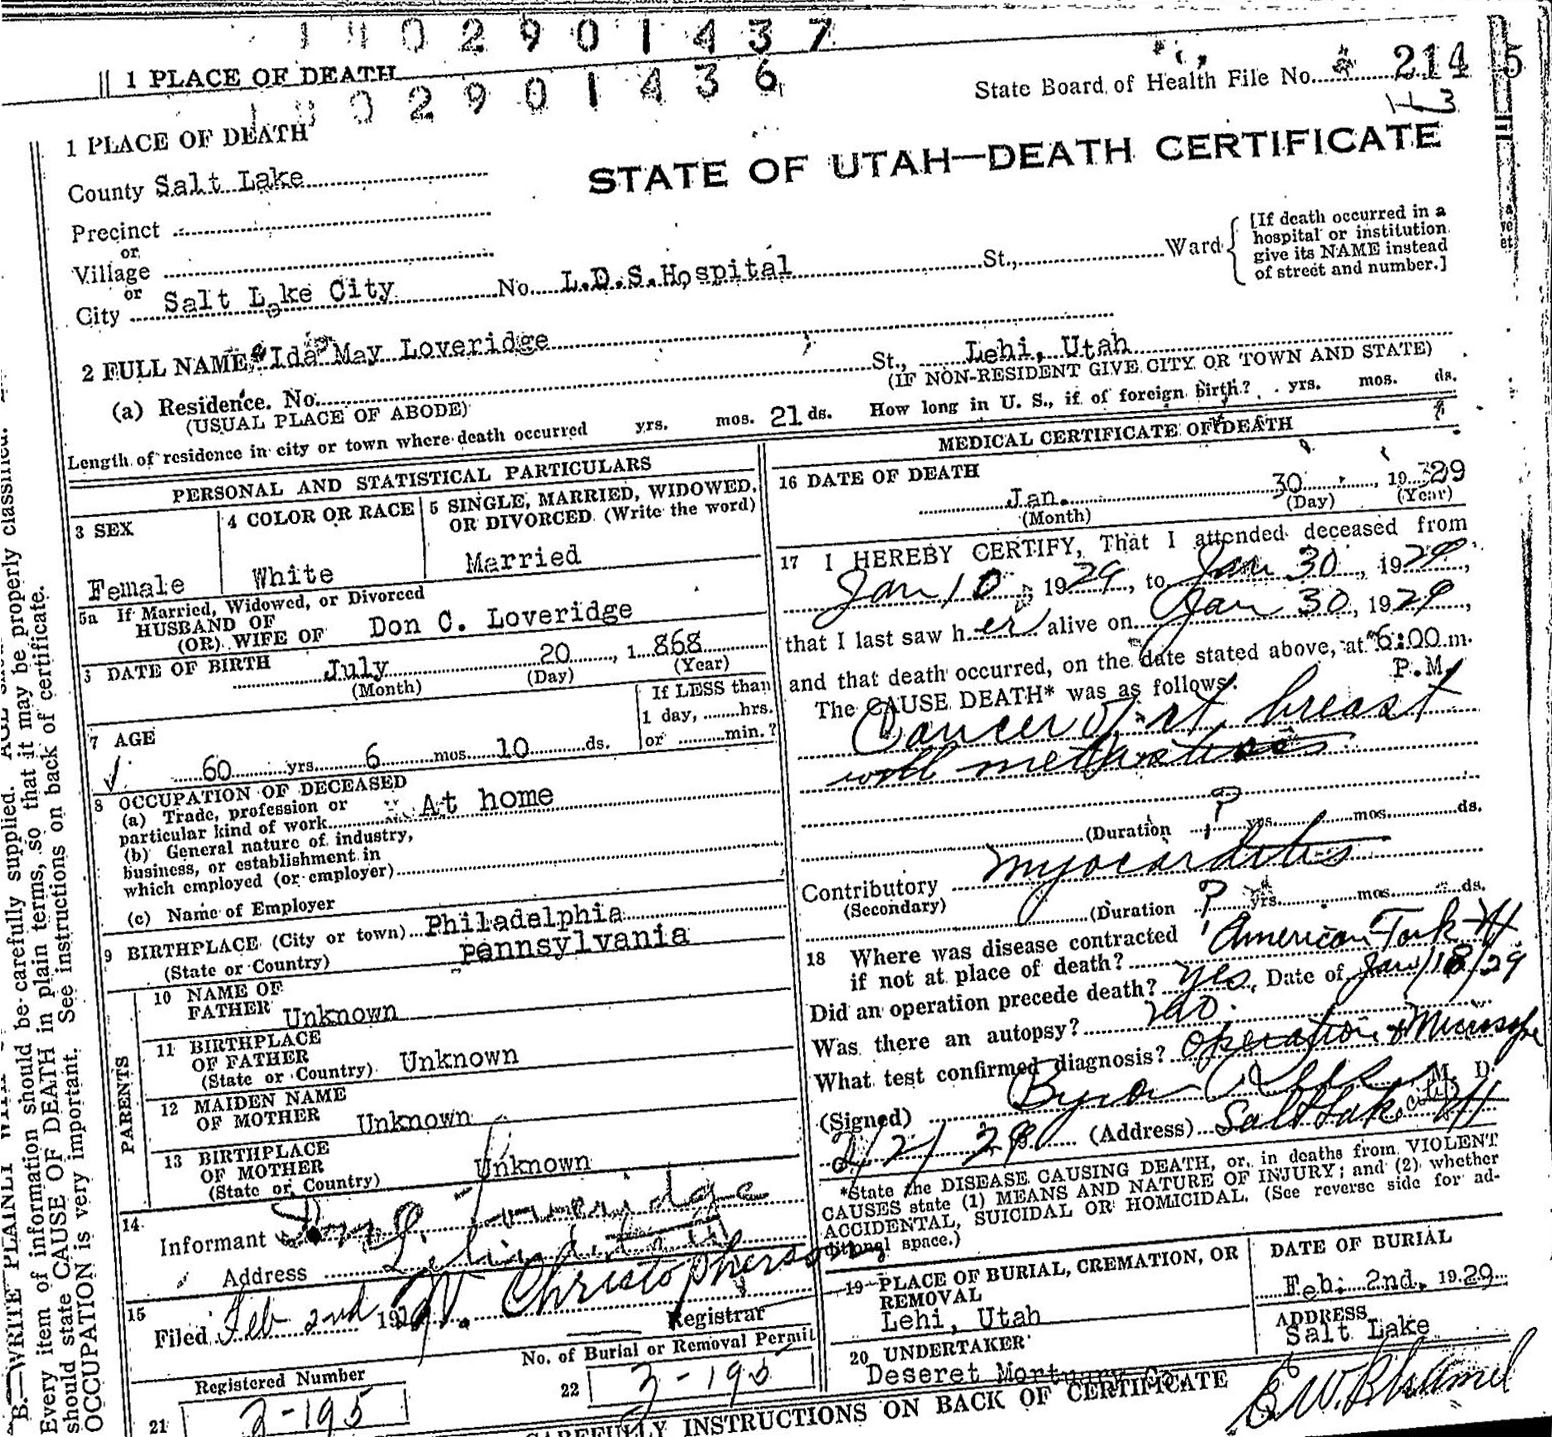 1 1 0 2 9 0 1 4 3 7
1 PLACE OF DEATH
1 8 0 2 9 0 1 4 3 6
State Board of Health File No. 214 5
143
1 PLACE OF DEATH
STATE OF UTAH—DEATH CERTIFICATE
County Salt Lake
Precinct
or
Village
or
City Salt Lake City No. L.D.S.Hospital St., Ward
[If death occurred in a
hospital or institution
give its NAME instead
of street and number.]
2 FULL NAME Ida May Loveridge
(a) Residence. No. St., Lehi, Utah
(USUAL PLACE OF ABODE) (IF NON-RESIDENT GIVE CITY OR TOWN AND STATE)
Length of residence in city or town where death occurred yrs. mos. 21 ds. How long in U. S., if of foreign birth? yrs. mos. ds.
PERSONAL AND STATISTICAL PARTICULARS
3 SEX
Female
4 COLOR OR RACE
White
5 SINGLE, MARRIED, WIDOWED,
OR DIVORCED (Write the word)
Married
5a If Married, Widowed, or Divorced
HUSBAND OF
(OR) WIFE OF Don C. Loveridge
DATE OF BIRTH July 20, 1 868
(Month) (Day) (Year)
7 AGE
60 yrs. 6 mos. 10 ds.
If LESS than
1 day, hrs.
or min.?
8 OCCUPATION OF DECEASED
(a) Trade, profession or
particular kind of work At home
(b) General nature of industry,
business, or establishment in
which employed (or employer)
(c) Name of Employer
9 BIRTHPLACE (City or town) Philadelphia
(State or Country) Pennsylvania
PARENTS
10 NAME OF
FATHER Unknown
11 BIRTHPLACE
OF FATHER
(State or Country) Unknown
12 MAIDEN NAME
OF MOTHER Unknown
13 BIRTHPLACE
OF MOTHER
(State or Country) Unknown
14
Informant Don C. Loveridge
Address Lehi, Utah
15
Filed Feb 2nd, 19 W. Christopherson
Registrar
Registered Number
21 3-195
No. of Burial or Removal Permit
22 3-195
MEDICAL CERTIFICATE OF DEATH
16 DATE OF DEATH
Jan. 30, 19 29
(Month) (Day) (Year)
17 I HEREBY CERTIFY, That I attended deceased from
Jan 10, 1929, to Jan 30, 1929,
that I last saw h er alive on Jan 30, 1929,
and that death occurred, on the date stated above, at 6:00 m.
P.M.
The CAUSE DEATH* was as follows:
Cancer of rt breast
with metastases
(Duration ? yrs. mos. ds.
Contributory myocarditis
(Secondary)
(Duration ? yrs. mos. ds.
18 Where was disease contracted
if not at place of death? American Fork Ut
Did an operation precede death? yes, Date of Jan/18/29
Was there an autopsy? no.
What test confirmed diagnosis? Operation & Microscope
(Signed) Byron M. D.
2/2/29 (Address) Salt Lake City Ut
*State the DISEASE CAUSING DEATH, or, in deaths from VIOLENT
CAUSES state (1) MEANS AND NATURE OF INJURY; and (2) whether
ACCIDENTAL, SUICIDAL OR HOMICIDAL. (See reverse side for ad-
ditional space.)
19 PLACE OF BURIAL, CREMATION, OR
REMOVAL
Lehi, Utah
DATE OF BURIAL
Feb. 2nd, 19 29
20 UNDERTAKER
Deseret Mortuary Co.
ADDRESS
Salt Lake
CAREFULLY INSTRUCTIONS ON BACK OF CERTIFICATE
B.—WRITE PLAINLY
Every item of information should be carefully supplied.
should state CAUSE OF DEATH in plain terms, so that it may be properly classified.
OCCUPATION is very important. See instructions on back of certificate.